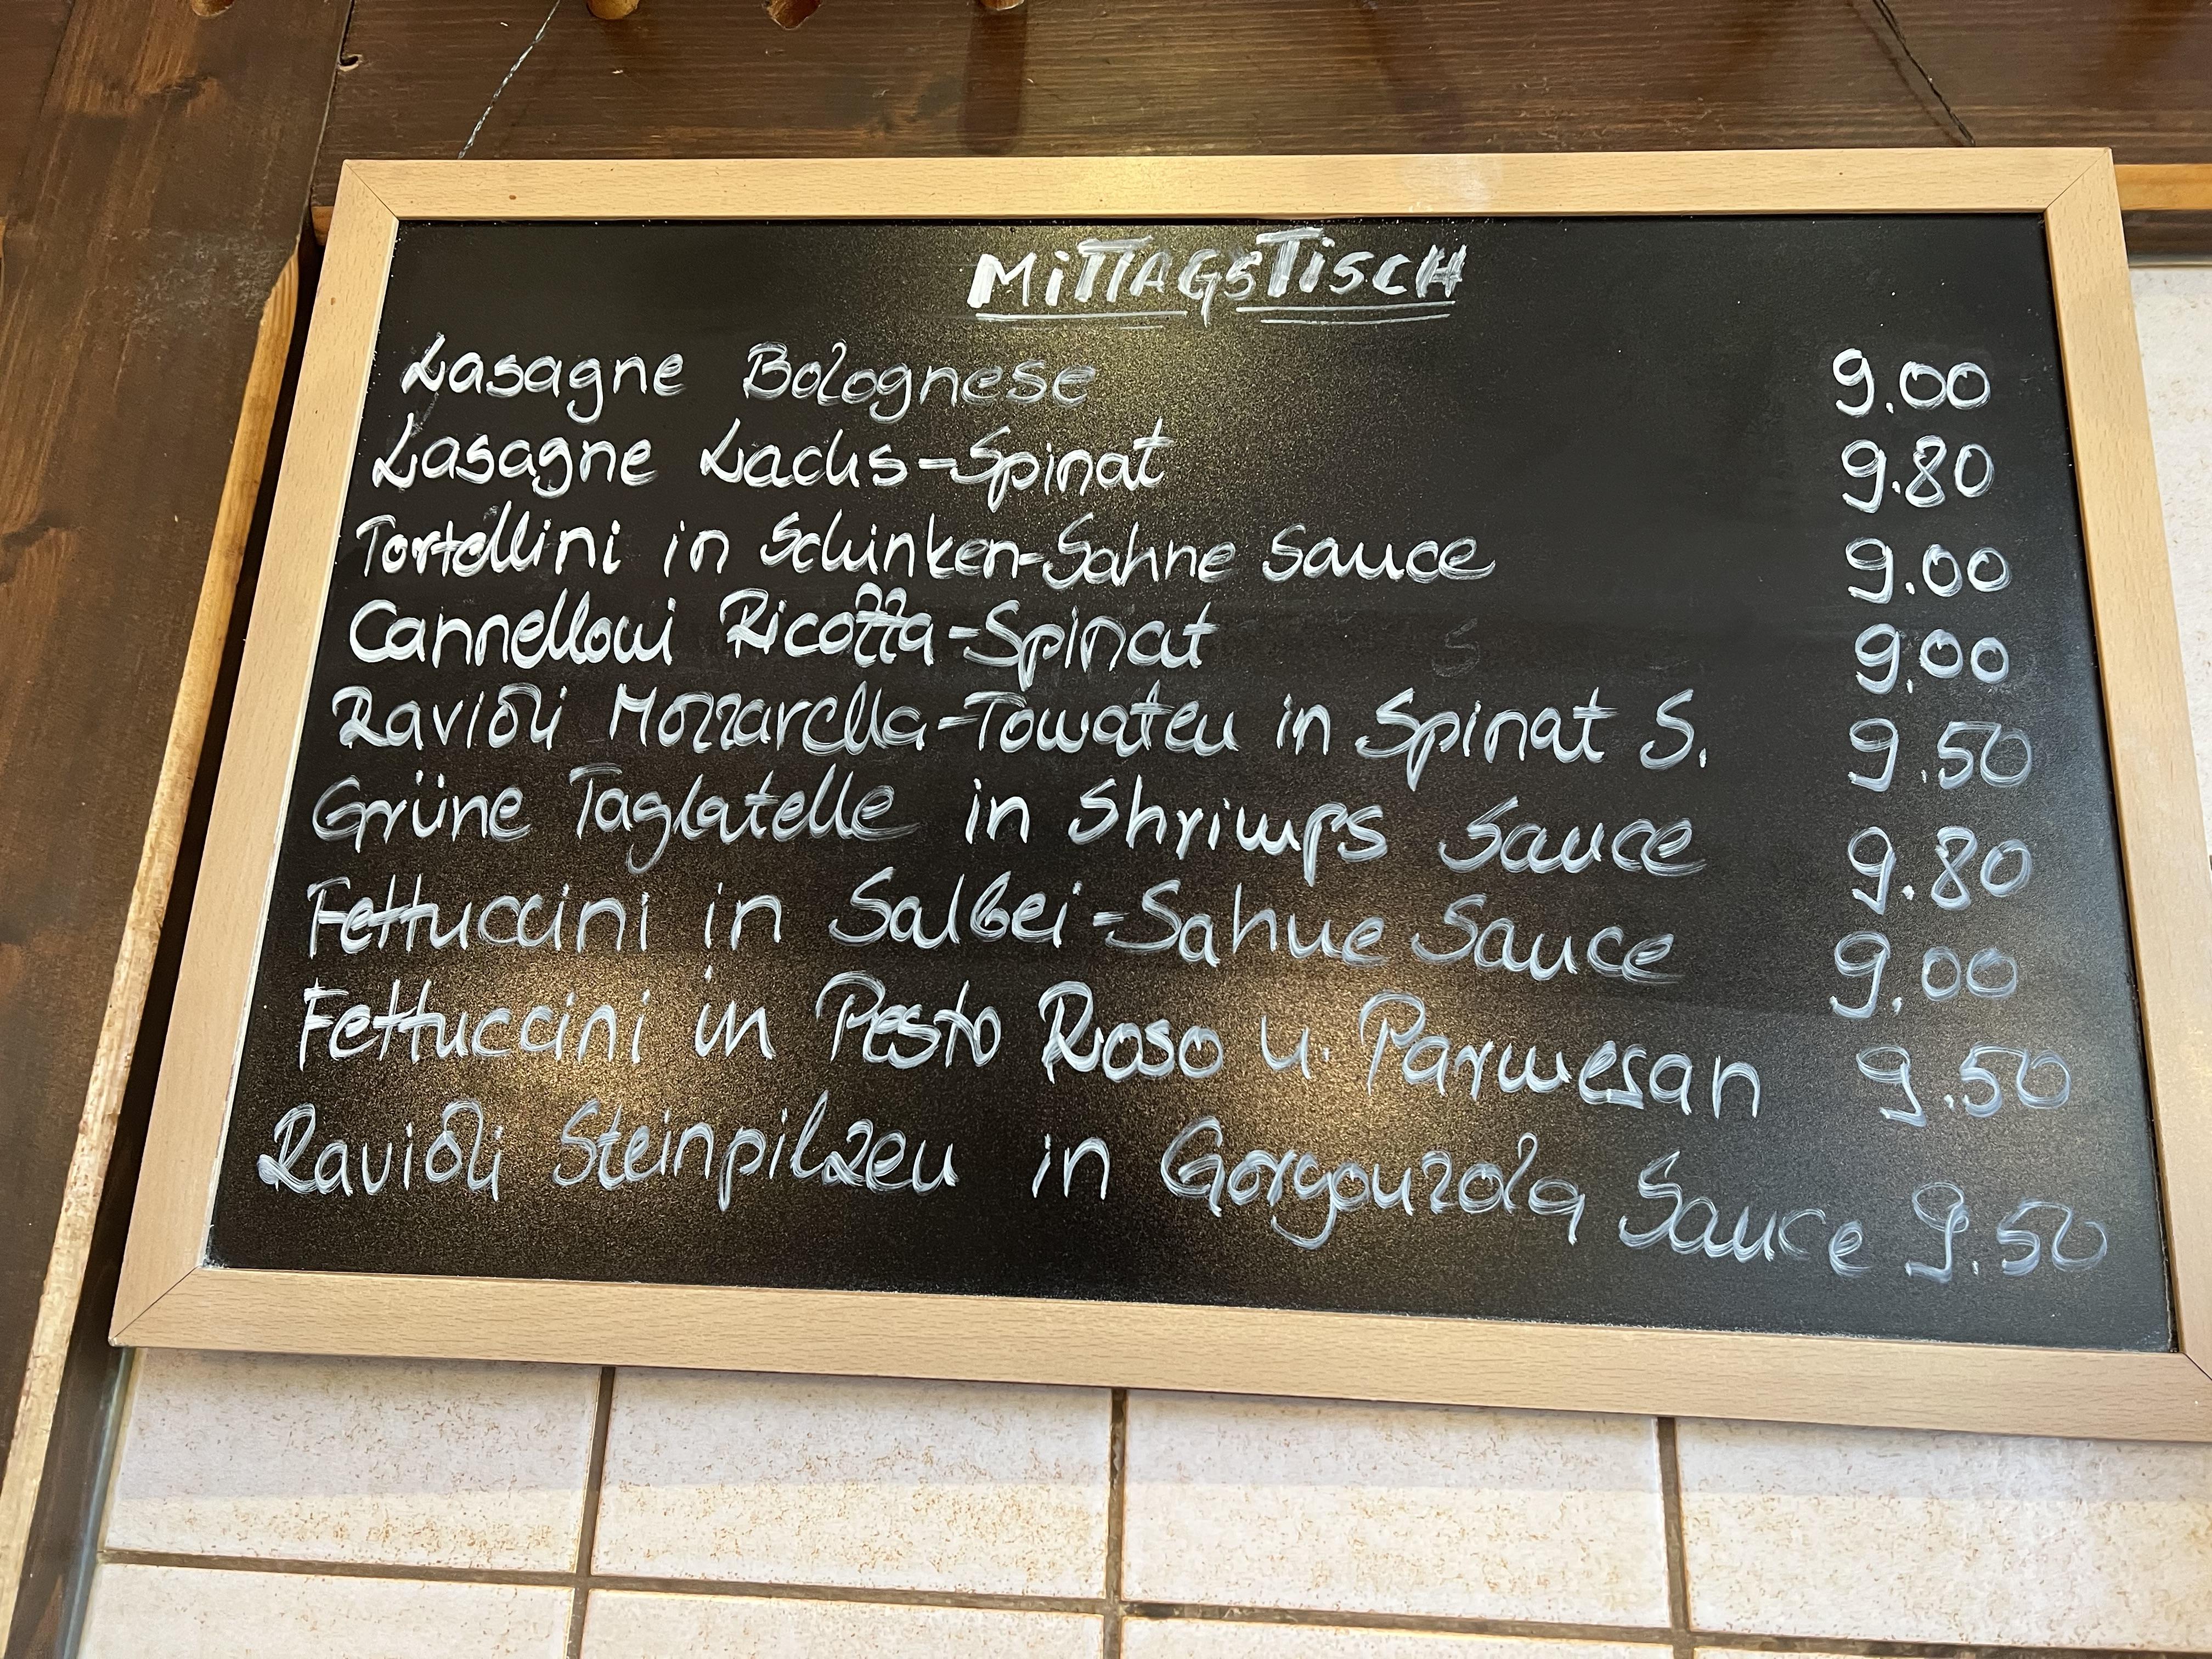 MITTAGSTISCH
Lasagne Bolognese 9.00
Lasagne Lachs-Spinat 9.80
Tortellini in Schinken-Sahne Sauce 9.00
Cannelloni Ricotta-Spinat 9.00
Ravioli Mozzarella-Tomaten in Spinat S. 9.50
Grüne Taglatelle in Shrimps Sauce 9.80
Fettuccini in Salbei-Sahne Sauce 9.00
Fettuccini in Pesto Rosso u. Parmesan 9.50
Ravioli Steinpilzen in Gorgonzola Sauce 9.50